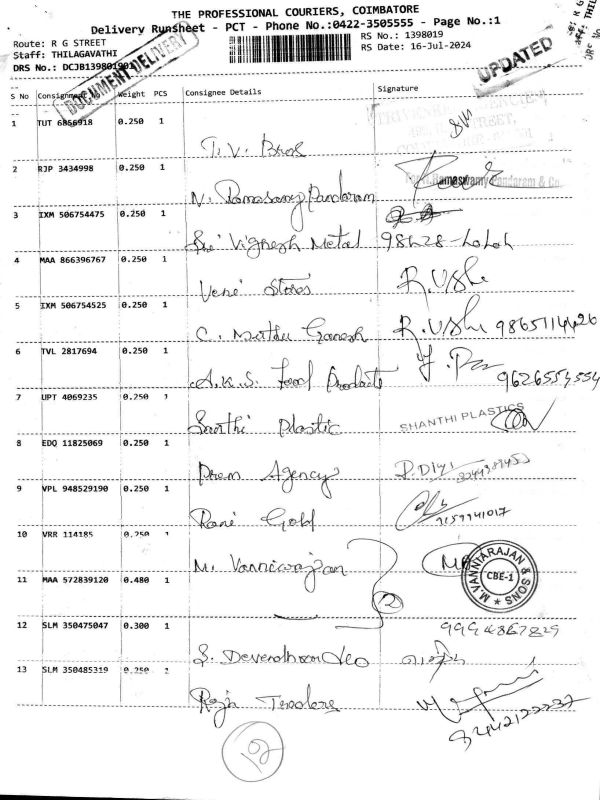 THE PROFESSIONAL COURIERS, COIMBATORE
Delivery Runsheet - PCT - Phone No.:0422-3505555 - Page No.:1
Route: R G STREET
RS No.: 1398019
Staff: THILAGAVATHI
RS Date: 16-Jul-2024
DRS No.: DCJB139801901
DOCUMENT DELIVERY
UPDATED
S No Consignment No Weight PCS Consignee Details Signature
1 TUT 6856918 0.250 1
T. V. Bros
2 RJP 3434998 0.250 1
N. Ramasamy Pandaram
For N.Ramaswamy Pandaram & Co.
3 IXM 506754475 0.250 1
Sri Vignesh Metal 98428
4 MAA 866396767 0.250 1
Veni Stores R.Ushe
5 IXM 506754525 0.250 1
C. Muthu Ganesh R.Ushe 9865114426
6 TVL 2817694 0.250 1
A.K.S. Food Products 9626554554
7 UPT 4069235 0.250 1
Santhi Plastic SHANTHI PLASTICS
8 EDQ 11825069 0.250 1
Prem Agency
9 VPL 948529190 0.250 1
Rani Gold 9159941017
10 VRR 114185 0.250 1
M. Vanniarajan
11 MAA 572839120 0.480 1
M. VANNIARAJAN & SONS
CBE-1
12 SLM 350475047 0.300 1
S. Devendhran Leo
13 SLM 350485319 0.250
Raja Traders 8242122237